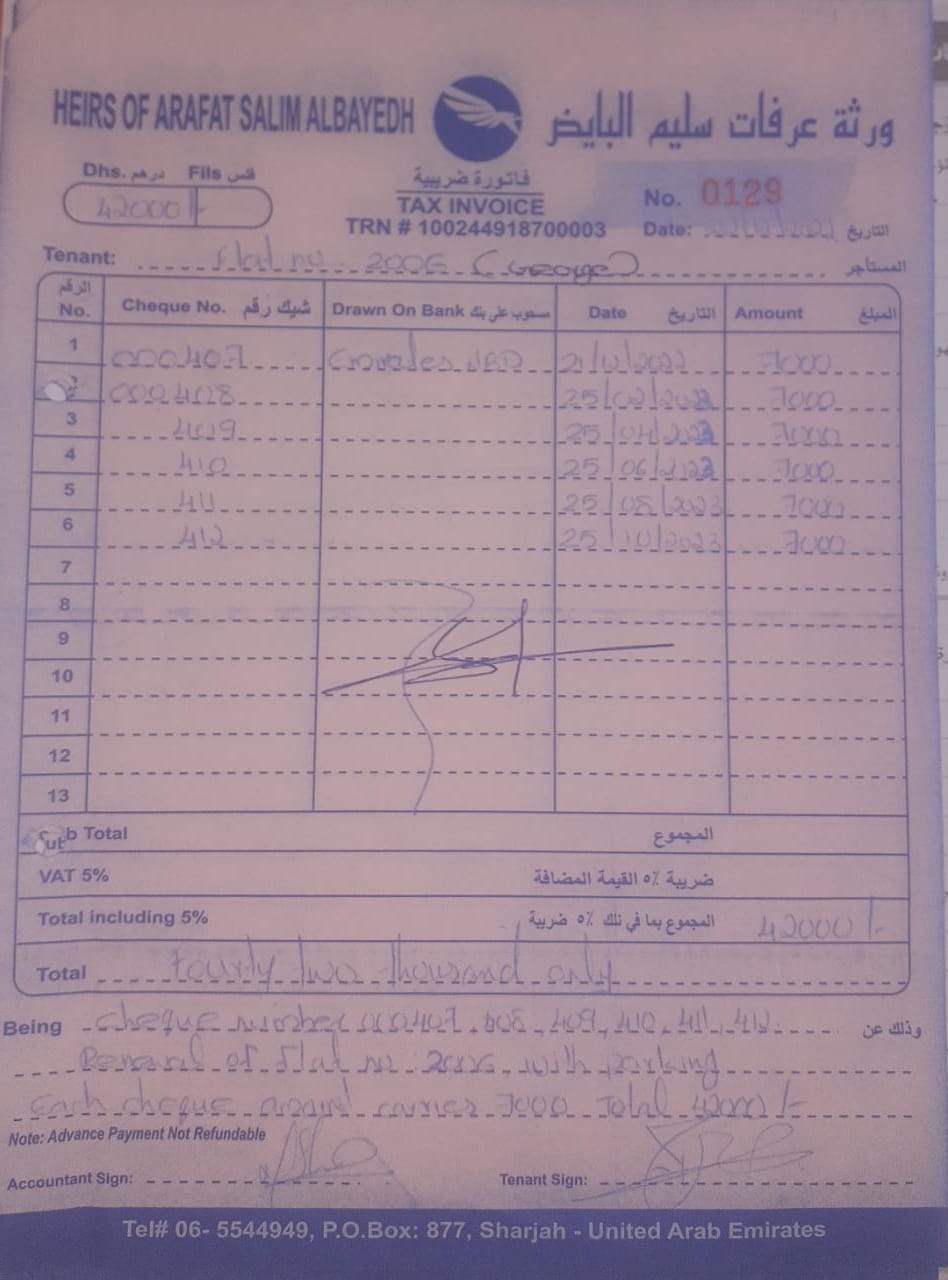 HEIRS OF ARAFAT SALIM ALBAYEDH ورثة عرفات سليم البايض
Dhs. درهم Fils فلس
42000/-
فاتورة ضريبية
TAX INVOICE
TRN # 100244918700003
No. 0129
Date: التاريخ
Tenant: Flat no 2006 (George) المستأجر
الرقم No. Cheque No. شيك رقم Drawn On Bank مسحوب على بنك Date التاريخ Amount المبلغ
1 000407 21/12/2022 7000
2 000408 25/02/2023 7000
3 409 25/04/2023 7000
4 410 25/06/2023 7000
5 411 25/08/2023 7000
6 412 25/10/2023 7000
7
8
9
10
11
12
13
Sub Total المجموع
VAT 5% ضريبة ٥٪ القيمة المضافة
Total including 5% المجموع بما في ذلك ٥٪ ضريبة 42000/-
Total Fourty two thousand only
Being cheque number 000407, 408, 409, 410, 411, 412. وذلك عن
Renewal of Flat no 2006, with parking
Each cheque amount carries 7000 Total 42000/-
Note: Advance Payment Not Refundable
Accountant Sign: Tenant Sign:
Tel# 06- 5544949, P.O.Box: 877, Sharjah - United Arab Emirates